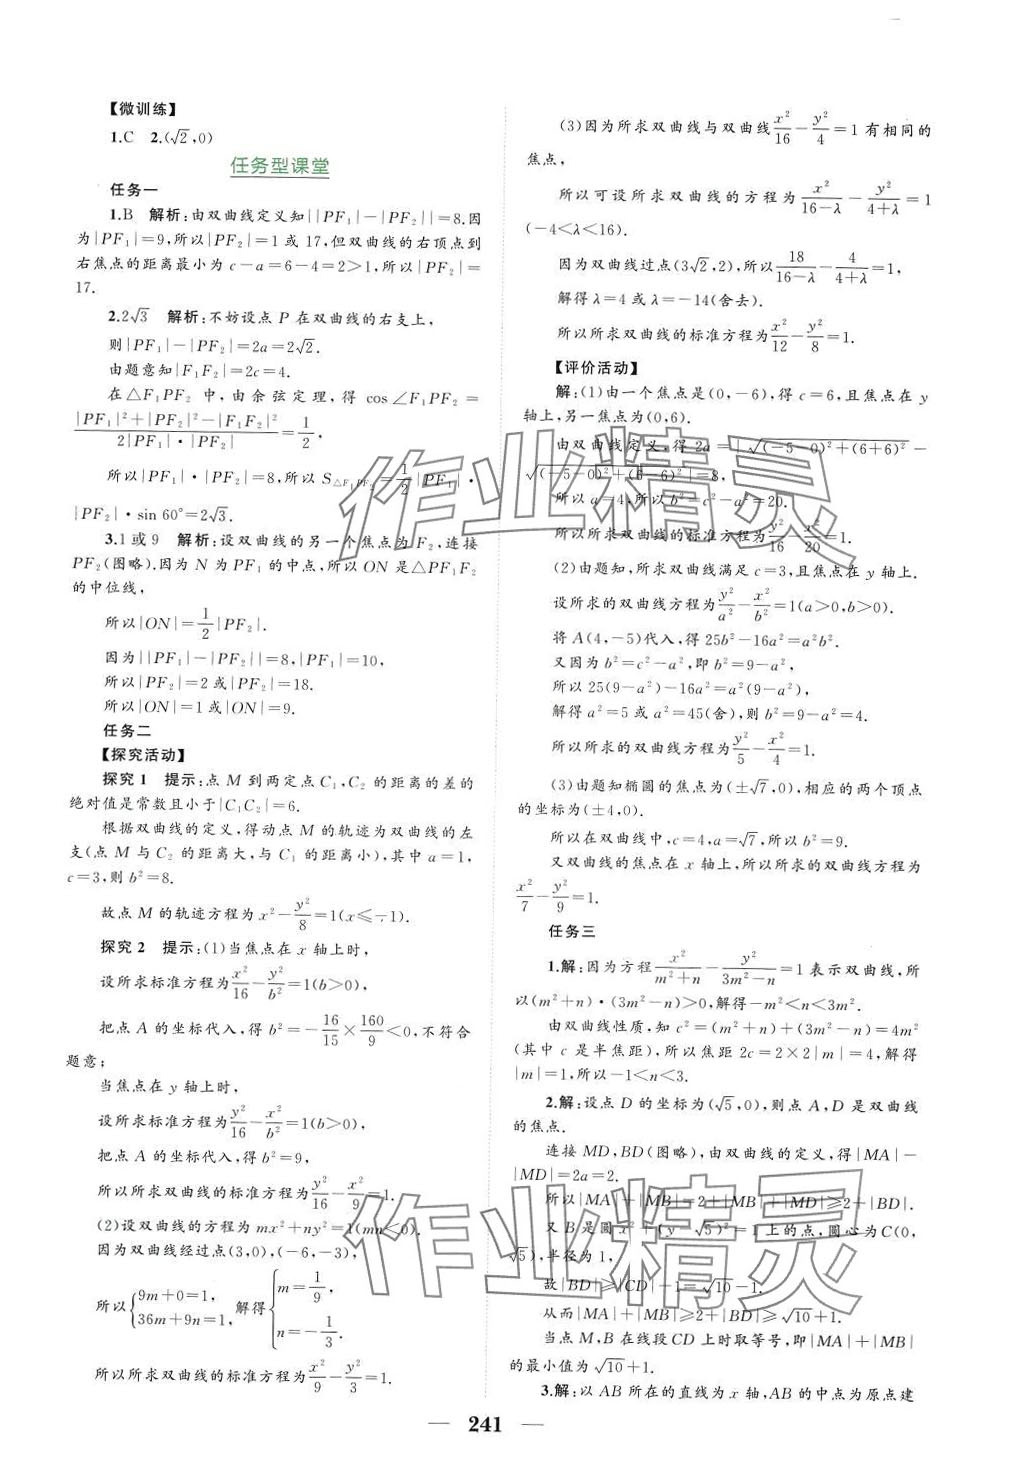 【微训练】
1.C　2.(√2,0)
任务型课堂
任务一
1.B　解析:由双曲线定义知||PF₁|－|PF₂||＝8.因
为|PF₁|＝9,所以|PF₂|＝1或17,但双曲线的右顶点到
右焦点的距离最小为c－a＝6－4＝2>1,所以|PF₂|＝
17.
2.2√3　解析:不妨设点P在双曲线的右支上,
则|PF₁|－|PF₂|＝2a＝2√2.
由题意知|F₁F₂|＝2c＝4.
在△F₁PF₂中,由余弦定理,得 cos∠F₁PF₂＝
(|PF₁|²＋|PF₂|²－|F₁F₂|²)/(2|PF₁|·|PF₂|)＝1/2,
所以|PF₁|·|PF₂|＝8,所以S△F₁PF₂＝1/2|PF₁|·
|PF₂|·sin 60°＝2√3.
3.1或9　解析:设双曲线的另一个焦点为F₂,连接
PF₂(图略),因为N为PF₁的中点,所以ON是△PF₁F₂
的中位线,
所以|ON|＝1/2|PF₂|.
因为||PF₁|－|PF₂||＝8,|PF₁|＝10,
所以|PF₂|＝2或|PF₂|＝18.
所以|ON|＝1或|ON|＝9.
任务二
【探究活动】
探究1　提示:点M到两定点C₁,C₂的距离的差的
绝对值是常数且小于|C₁C₂|＝6.
根据双曲线的定义,得动点M的轨迹为双曲线的左
支(点M与C₂的距离大,与C₁的距离小),其中a＝1,
c＝3,则b²＝8.
故点M的轨迹方程为x²－y²/8＝1(x≤－1).
探究2　提示:(1)当焦点在x轴上时,
设所求标准方程为x²/16－y²/b²＝1(b>0),
把点A的坐标代入,得b²＝－16/15×160/9<0,不符合
题意;
当焦点在y轴上时,
设所求标准方程为y²/16－x²/b²＝1(b>0),
把点A的坐标代入,得b²＝9,
所以所求双曲线的标准方程为y²/16－x²/9＝1.
(2)设双曲线的方程为mx²＋ny²＝1(mn<0).
因为双曲线经过点(3,0),(－6,－3),
所以{9m＋0＝1, 36m＋9n＝1, 解得{m＝1/9, n＝－1/3.
所以所求双曲线的标准方程为x²/9－y²/3＝1.
(3)因为所求双曲线与双曲线x²/16－y²/4＝1有相同的
焦点,
所以可设所求双曲线的方程为x²/(16－λ)－y²/(4＋λ)＝1
(－4<λ<16).
因为双曲线过点(3√2,2),所以18/(16－λ)－4/(4＋λ)＝1,
解得λ＝4或λ＝－14(舍去).
所以所求双曲线的标准方程为x²/12－y²/8＝1.
【评价活动】
解:(1)由一个焦点是(0,－6),得c＝6,且焦点在y
轴上,另一焦点为(0,6).
由双曲线定义,得2a＝|√((－5－0)²＋(6＋6)²)－
√((－5－0)²＋(6－6)²)|＝8,
所以a＝4,所以b²＝c²－a²＝20.
所以所求双曲线的标准方程为y²/16－x²/20＝1.
(2)由题知,所求双曲线满足c＝3,且焦点在y轴上.
设所求的双曲线方程为y²/a²－x²/b²＝1(a>0,b>0).
将A(4,－5)代入,得25b²－16a²＝a²b².
又因为b²＝c²－a²,即b²＝9－a²,
所以25(9－a²)－16a²＝a²(9－a²),
解得a²＝5或a²＝45(舍),则b²＝9－a²＝4.
所以所求的双曲线方程为y²/5－x²/4＝1.
(3)由题知椭圆的焦点为(±√7,0),相应的两个顶点
的坐标为(±4,0).
所以在双曲线中,c＝4,a＝√7,所以b²＝9.
又双曲线的焦点在x轴上,所以所求的双曲线方程为
x²/7－y²/9＝1.
任务三
1.解:因为方程x²/(m²＋n)－y²/(3m²－n)＝1表示双曲线,所
以(m²＋n)·(3m²－n)>0,解得－m²<n<3m².
由双曲线性质,知c²＝(m²＋n)＋(3m²－n)＝4m²
(其中c是半焦距),所以焦距2c＝2×2|m|＝4,解得
|m|＝1,所以－1<n<3.
2.解:设点D的坐标为(√5,0),则点A,D是双曲线
的焦点.
连接MD,BD(图略),由双曲线的定义,得|MA|－
|MD|＝2a＝2.
所以|MA|＋|MB|＝2＋|MB|＋|MD|≥2＋|BD|.
又B是圆x²＋(y－√5)²＝1上的点,圆心为C(0,
√5),半径为1,
故|BD|≥|CD|－1＝√10－1.
从而|MA|＋|MB|≥2＋|BD|≥√10＋1.
当点M,B在线段CD上时取等号,即|MA|＋|MB|
的最小值为√10＋1.
3.解:以AB所在的直线为x轴,AB的中点为原点建
— 241 —
作业精灵
作业精灵